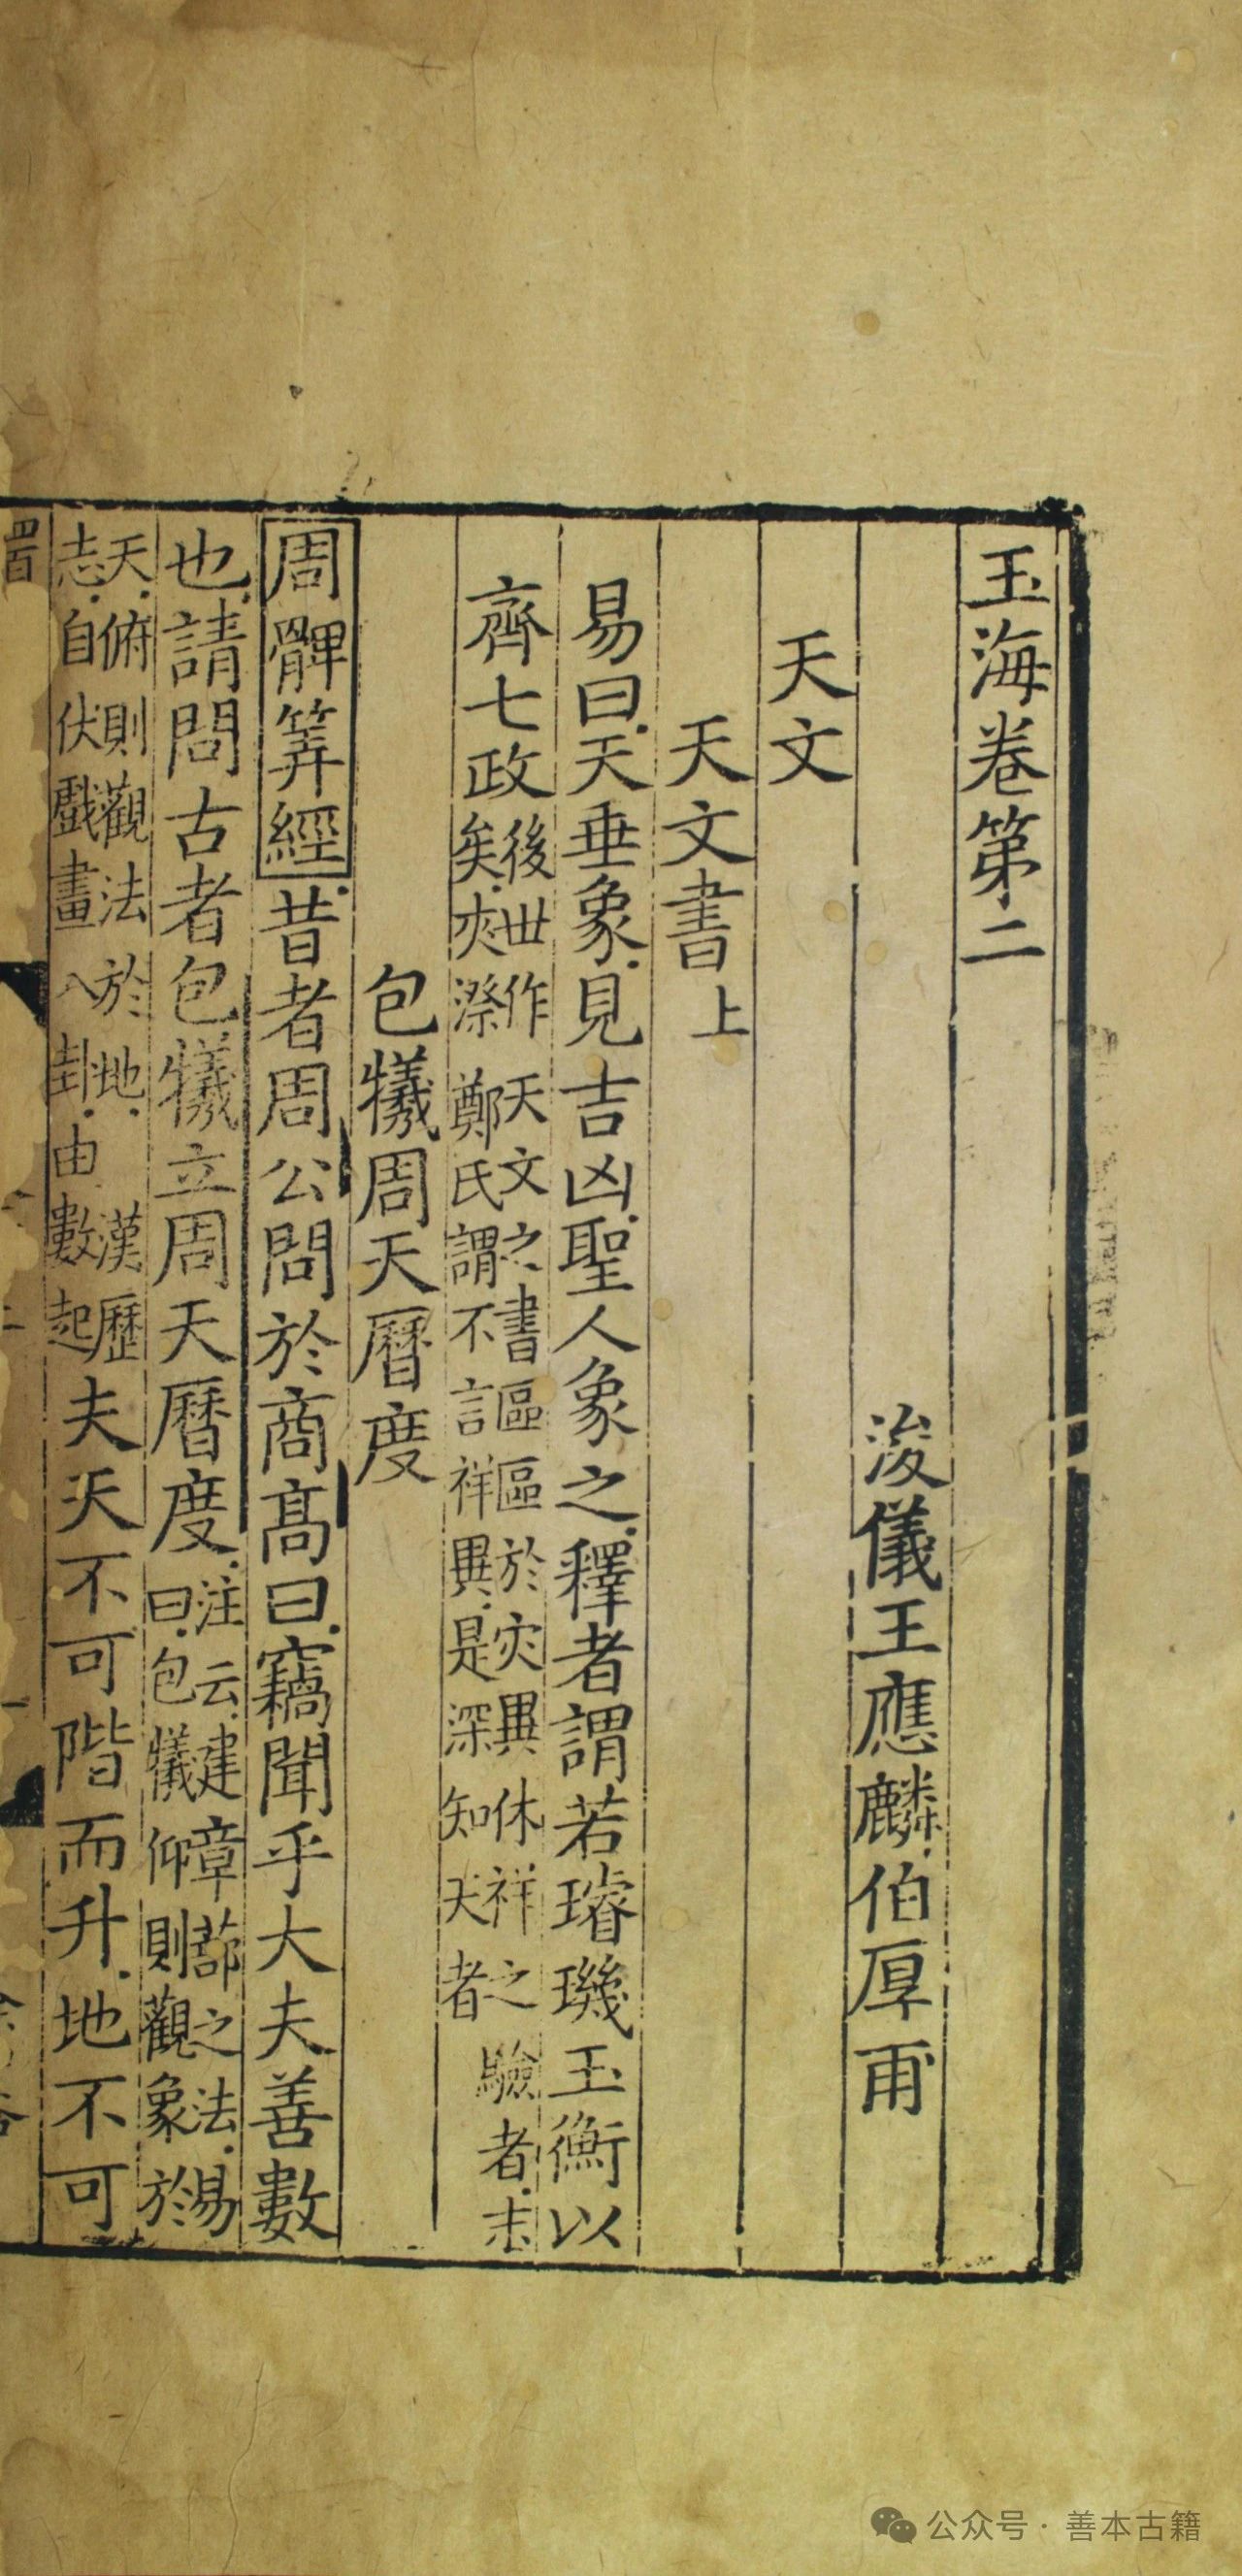 玉海卷第二
浚儀王應麟伯厚甫
天文
天文書上
易曰天垂象見吉凶聖人象之釋者謂若璿璣玉衡以
齊七政後世作天文之書謳區於灾異休祥之驗者末
矣夾漈鄭氏謂不言祥異是深知天者
包犧周天曆度
周髀筭經昔者周公問於商高曰竊聞乎大夫善數
也請問古者包犧立周天曆度注云建章蔀之法易
曰包犧仰則觀象於
天俯則觀法於地漢歷
志自伏戲畫八卦由數起夫天不可階而升地不可
公众号·善本古籍